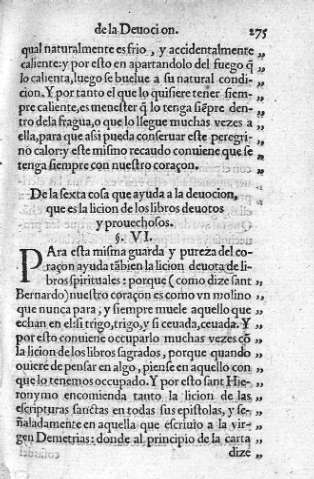 de la Deuocion. 275
qual naturalmente es frio, y accidentalmente „
caliente: y por esto en apartandolo del fuego q̃ „
lo calienta, luego se buelue a su natural condi- „
cion. Y por tanto el que lo quisiere tener siem- „
pre caliente, es menester q̃ lo tenga siẽpre den- „
tro de la fragua, o que lo llegue muchas vezes a „
ella, para que asi pueda conseruar este peregri- „
no calor: y este mismo recaudo conuiene que se „
tenga siempre con nuestro coraçon. „
De la sexta cosa que ayuda a la deuocion,
que es la licion de los libros deuotos
y prouechosos.
§. VI.
PAra esta misma guarda y pureza del co-
raçon ayuda tãbien la licion deuota de li- „
bros spirituales: porque (como dize sant „
Bernardo) nuestro coraçon es como vn molino „
que nunca para, y siempre muele aquello que „
echan en el: si trigo, trigo, y si ceuada, ceuada. Y „
por esto conuiene occuparlo muchas vezes cõ „
la licion de los libros sagrados, porque quando „
ouiere de pensar en algo, piense en aquello con „
que lo tenemos occupado. Y por esto sant Hie- „
ronymo encomienda tanto la licion de las „
escripturas sanctas en todas sus epistolas, y se- „
ñaladamente en aquella que escriuio a la vir- „
gen Demetrias: donde al principio de la carta „
dize „